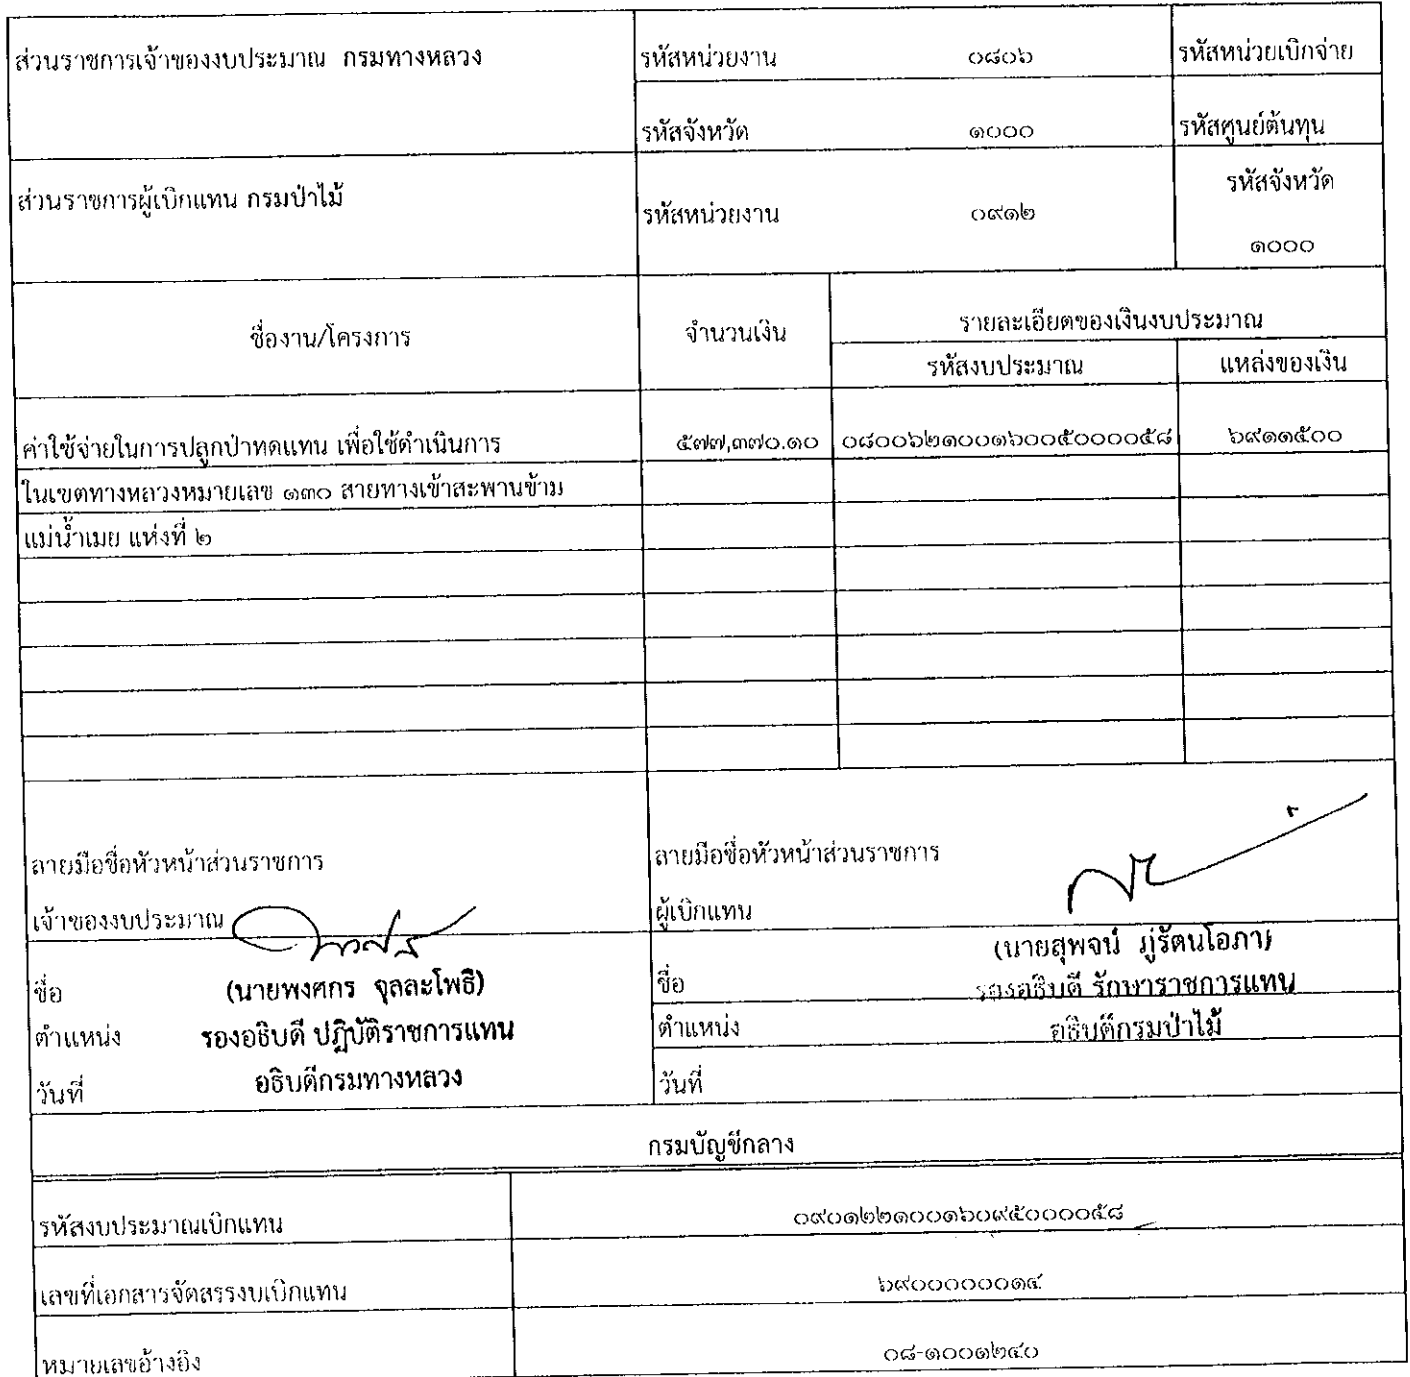 ส่วนราชการเจ้าของงบประมาณ กรมทางหลวง รหัสหน่วยงาน ๐๘๐๖ รหัสหน่วยเบิกจ่าย
รหัสจังหวัด ๑๐๐๐ รหัสศูนย์ต้นทุน
ส่วนราชการผู้เบิกแทน กรมป่าไม้ รหัสหน่วยงาน ๐๙๑๒ รหัสจังหวัด
๑๐๐๐
ชื่องาน/โครงการ จำนวนเงิน รายละเอียดของเงินงบประมาณ
รหัสงบประมาณ แหล่งของเงิน
ค่าใช้จ่ายในการปลูกป่าทดแทน เพื่อใช้ดำเนินการ ๕๗๗,๓๗๐.๑๐ ๐๘๐๐๖๒๑๐๐๑๖๐๐๕๐๐๐๐๕๘ ๖๙๑๑๕๐๐
ในเขตทางหลวงหมายเลข ๑๓๐ สายทางเข้าสะพานข้าม
แม่น้ำเมย แห่งที่ ๒
ลายมือชื่อหัวหน้าส่วนราชการ
เจ้าของงบประมาณ
ชื่อ (นายพงศกร จุลละโพธิ)
ตำแหน่ง รองอธิบดี ปฏิบัติราชการแทน
วันที่ อธิบดีกรมทางหลวง
ลายมือชื่อหัวหน้าส่วนราชการ
ผู้เบิกแทน
(นายสุพจน์ ภู่รัตนโอภา)
ชื่อ รองอธิบดี รักษาราชการแทน
ตำแหน่ง อธิบดีกรมป่าไม้
วันที่
กรมบัญชีกลาง
รหัสงบประมาณเบิกแทน ๐๙๐๑๒๒๑๐๐๑๖๐๙๕๐๐๐๐๕๘
เลขที่เอกสารจัดสรรงบเบิกแทน ๖๙๐๐๐๐๐๐๑๔
หมายเลขอ้างอิง ๐๘-๑๐๐๑๒๔๐